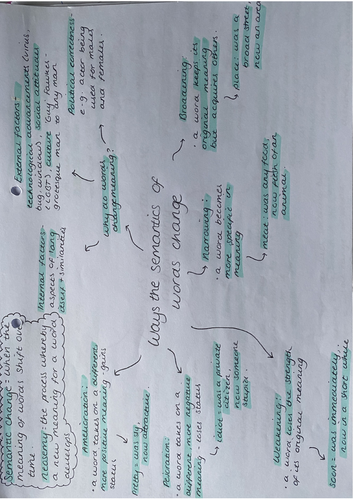 Semantic change = when the
meaning of words shift over
time.
neosemy: the process whereby
a new meaning for a word
develops
Internal factors-
aspects of lang
User + similarities
External factors-
technological advancements (virus,
bug, windows), social attitudes
culture Guy Fawkes -
grotesque man to any man
Political correctness-
e.g actor being
used for males
and females.
why do words
change meaning?
Ways the semantics of
words change
Amelioration:
• a word takes on a different,
more positive meaning - gains
status
now attractive.
Pejoration:
• a word takes on a
different more negative
meaning - loses status
idiot = was a private
citizen,
now someone
stupid
Weakening:
• a word loses the strength
of its original meaning
soon = was immediately,
now in a short while
Narrowing:
• a word becomes
more specific in
meaning
meat = was any food,
now flesh of an
animal.
Broadening:
• a word keeps its
original meaning
but acquires other.
place: was a
broad street
now an area